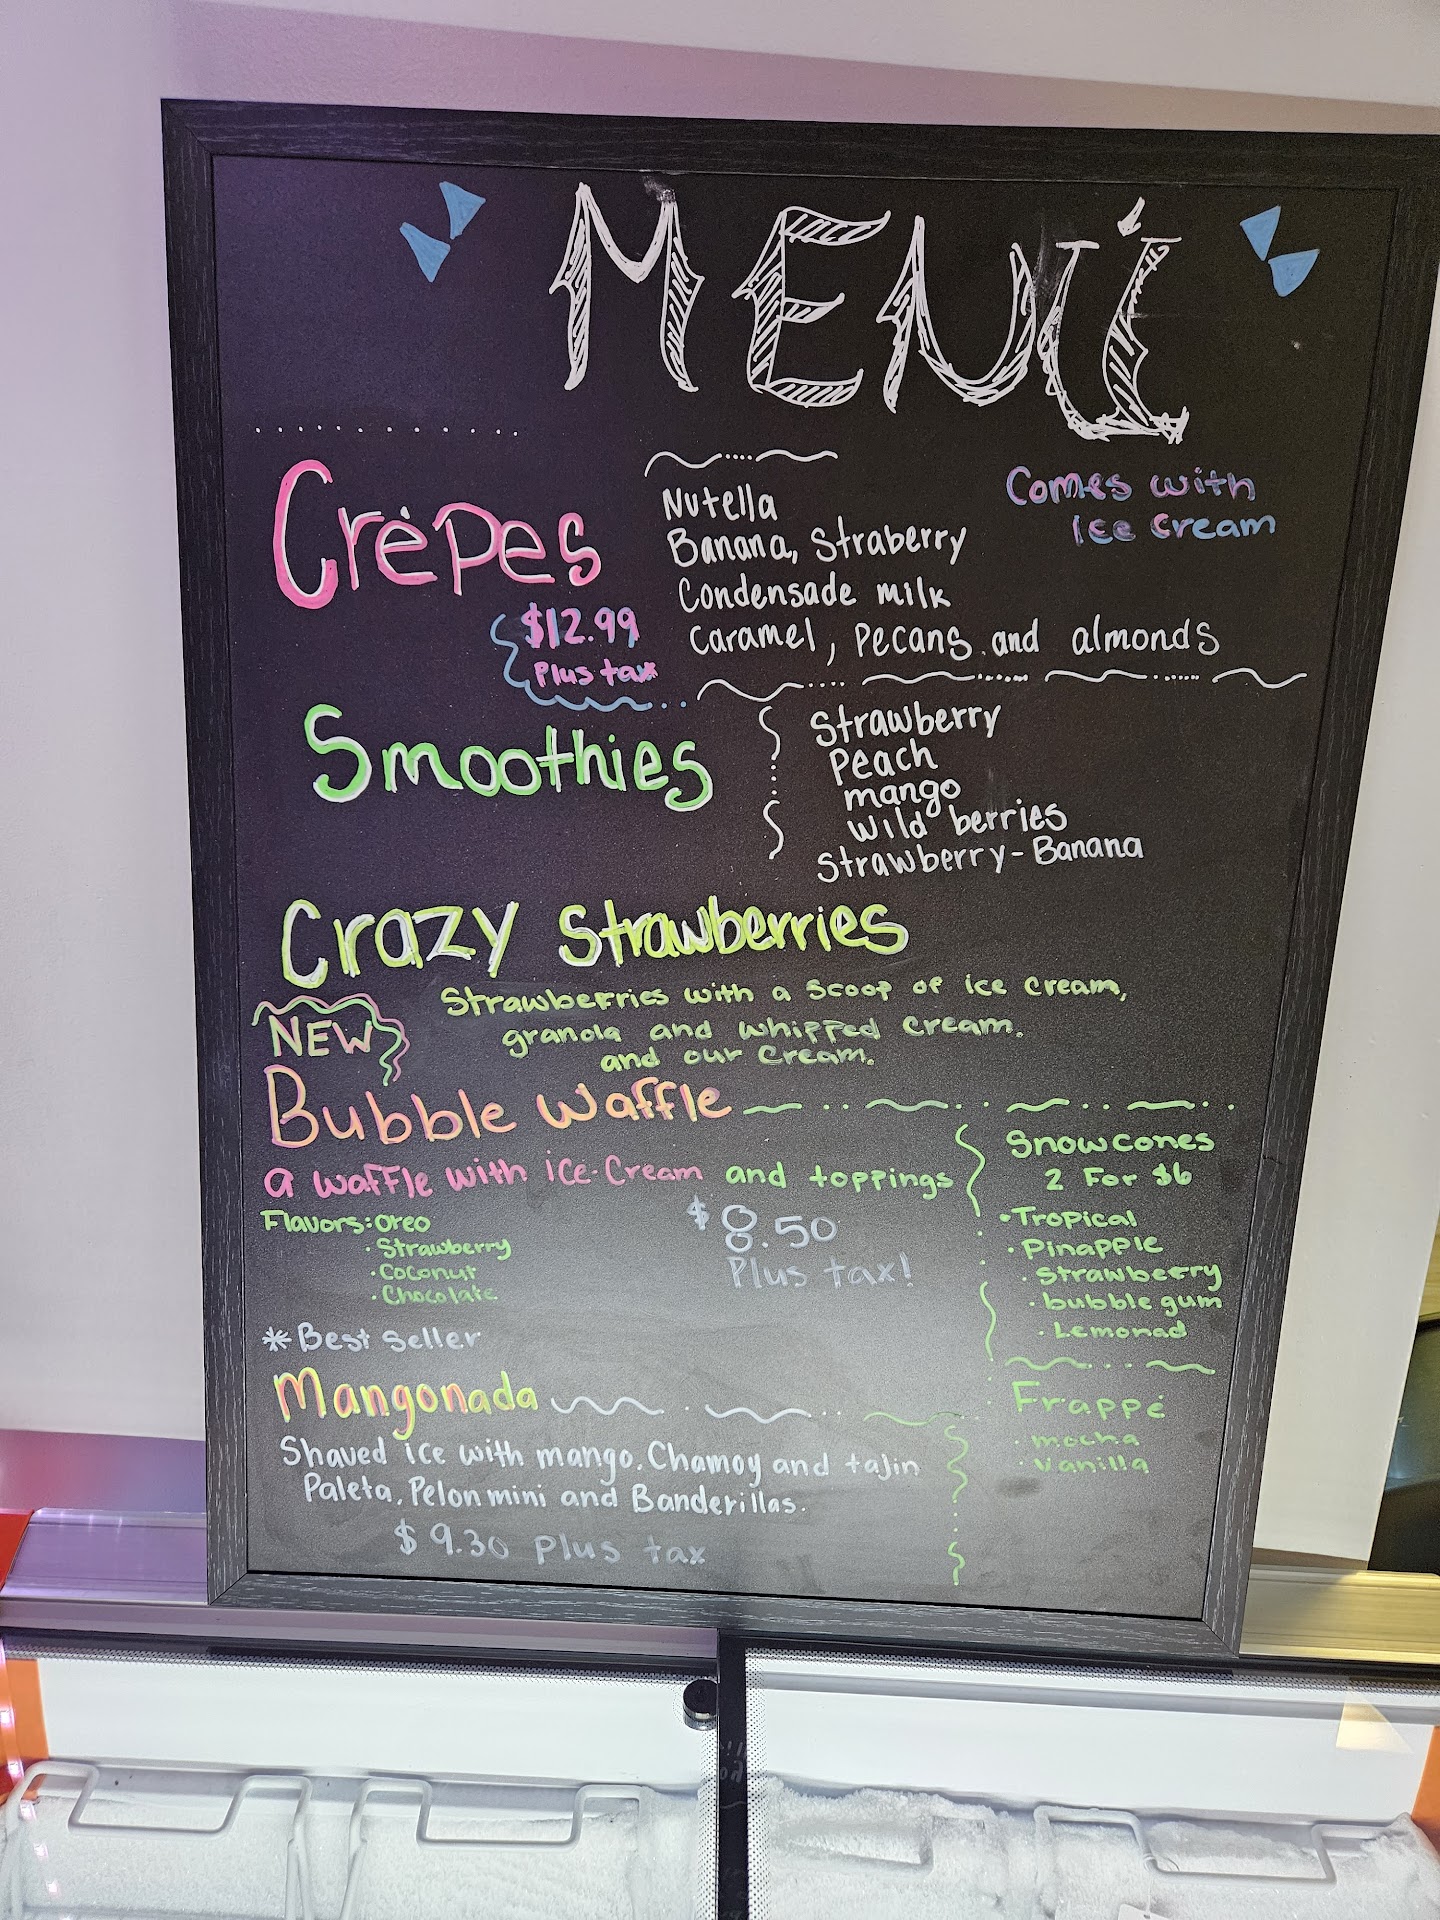 MENÚ
Crêpes
$12.99
Plus tax
Nutella
Banana, Straberry
Condensade milk
Caramel, Pecans and almonds
Comes with
Ice Cream
Smoothies
Strawberry
Peach
mango
Wild berries
Strawberry-Banana
Crazy Strawberries
Strawberries with a scoop of ice cream,
granola and whipped cream.
and our cream.
NEW
Bubble Waffle
a waffle with ice-Cream and toppings
Flavors: Oreo
· Strawberry
· Coconut
· Chocolate
$8.50
Plus tax!
* Best Seller
Mangonada
Shaved ice with mango. Chamoy and tajin
Paleta, Pelon mini and Banderillas.
$9.30 plus tax
Snowcones
2 For $6
· Tropical
· Pinapple
· Strawberry
· bubble gum
· Lemonad
Frappé
· mocha
· Vanilla